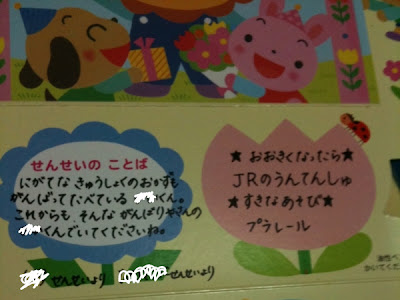 せんせいの ことば
にがてな きゅうしょくのおかずも
がんばってたべている くん。
これからも、そんな がんばりやさんの
くんでいてくださいね。
せんせいより せんせいより
★ おおきくなったら ★
JRのうんてんしゅ
★ すきなあそび ★
プラレール
油性ペ
かいてくだ